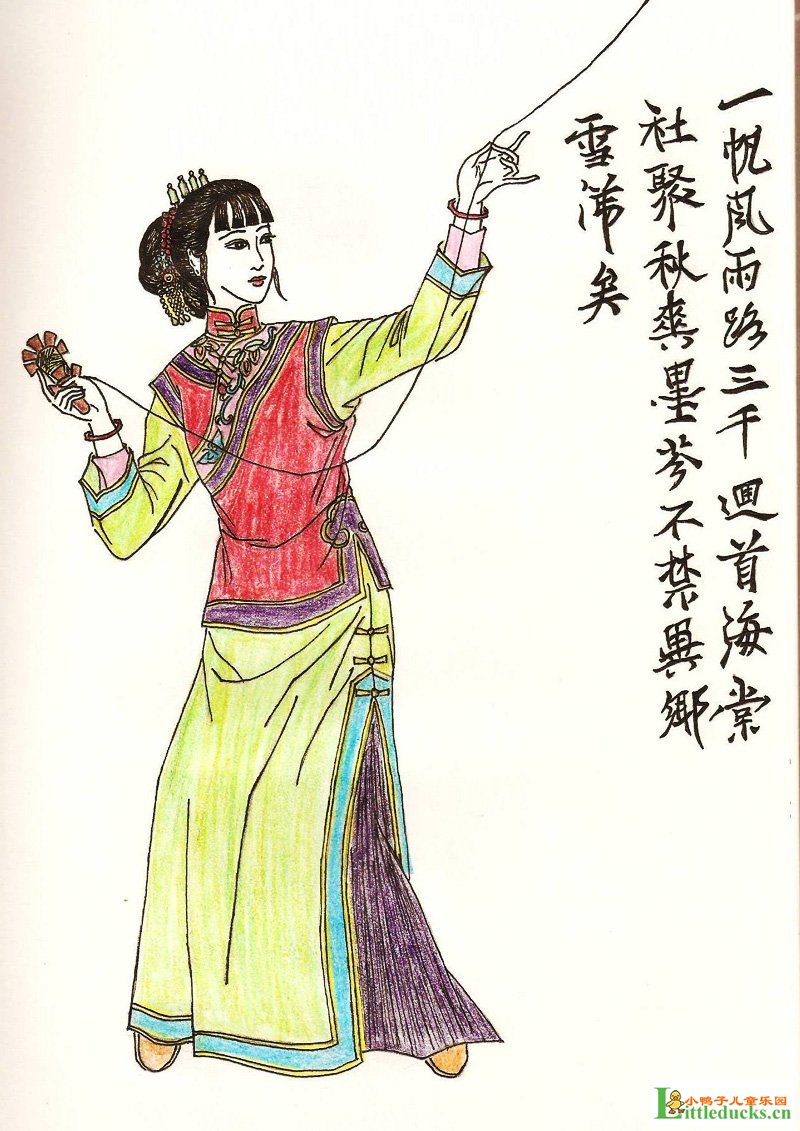 一帆風雨路三千週首海棠
社聚秋爽墨芩不禁異鄉
雪涕矣
小鸭子儿童乐园
Littleducks.cn